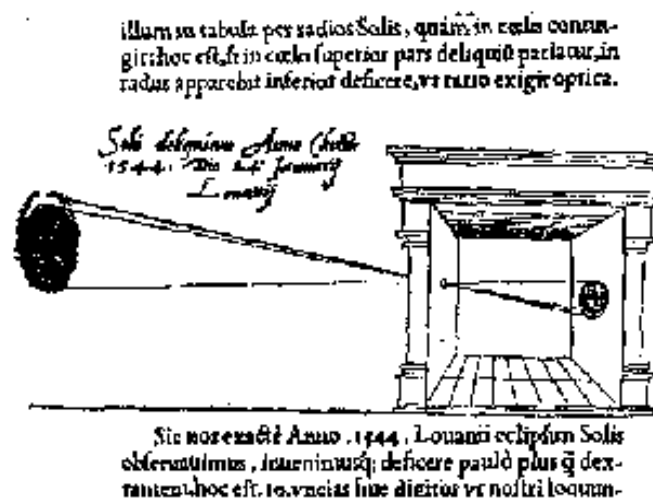 illum in tabula per radios Solis, quàm in cœlis contin-
git: hoc est, si in cœlo superior pars deliquiũ patiatur, in
radiis apparebit inferior deficere, vt ratio exigit optica.
Solis deliquium Anno Christi
1544. Die 24 Januarij
Louanij
Sic nos exactè Anno .1544. Louanii eclipsim Solis
obseruauimus, inuenimusq; deficere paulò plus q̃ dex-
tantem, hoc est, 10. vncias siue digitos vt nostri loquun-